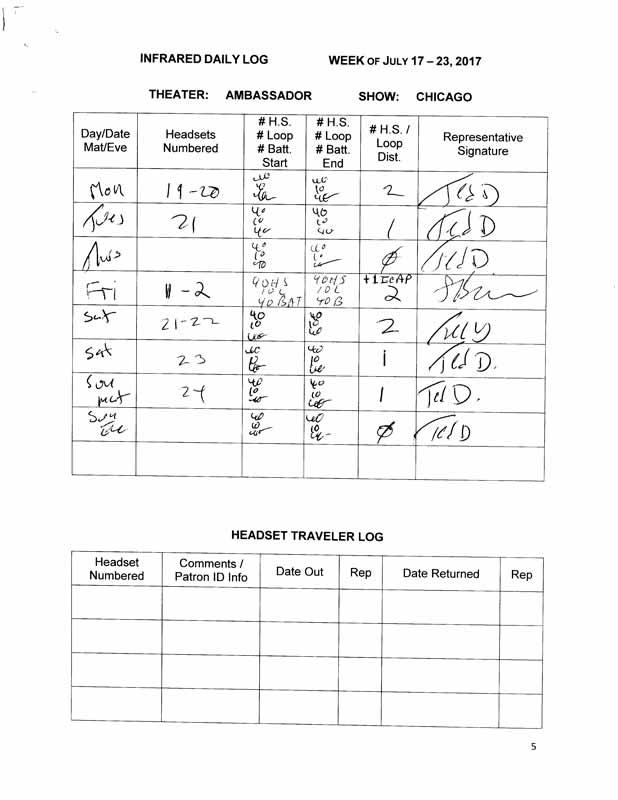 INFRARED DAILY LOG WEEK OF JULY 17 – 23, 2017
THEATER: AMBASSADOR SHOW: CHICAGO
Day/Date Mat/Eve Headsets Numbered # H.S. # Loop # Batt. Start # H.S. # Loop # Batt. End # H.S. / Loop Dist. Representative Signature
Mon 19-20 40 10 40 40 10 40 2
Tues 21 40 10 40 40 10 40 1
40 10 40 40 10 ø
Fri 11-2 40HS 10L 40BAT 40HS 10L 40B 2
Sat 21-22 40 10 40 40 10 40 2
Sat 23 40 10 40 40 10 40 1
Sun mat 24 40 10 40 40 10 40 1
Sun Eve 40 10 40 40 10 40 ø
HEADSET TRAVELER LOG
Headset Numbered Comments / Patron ID Info Date Out Rep Date Returned Rep
5